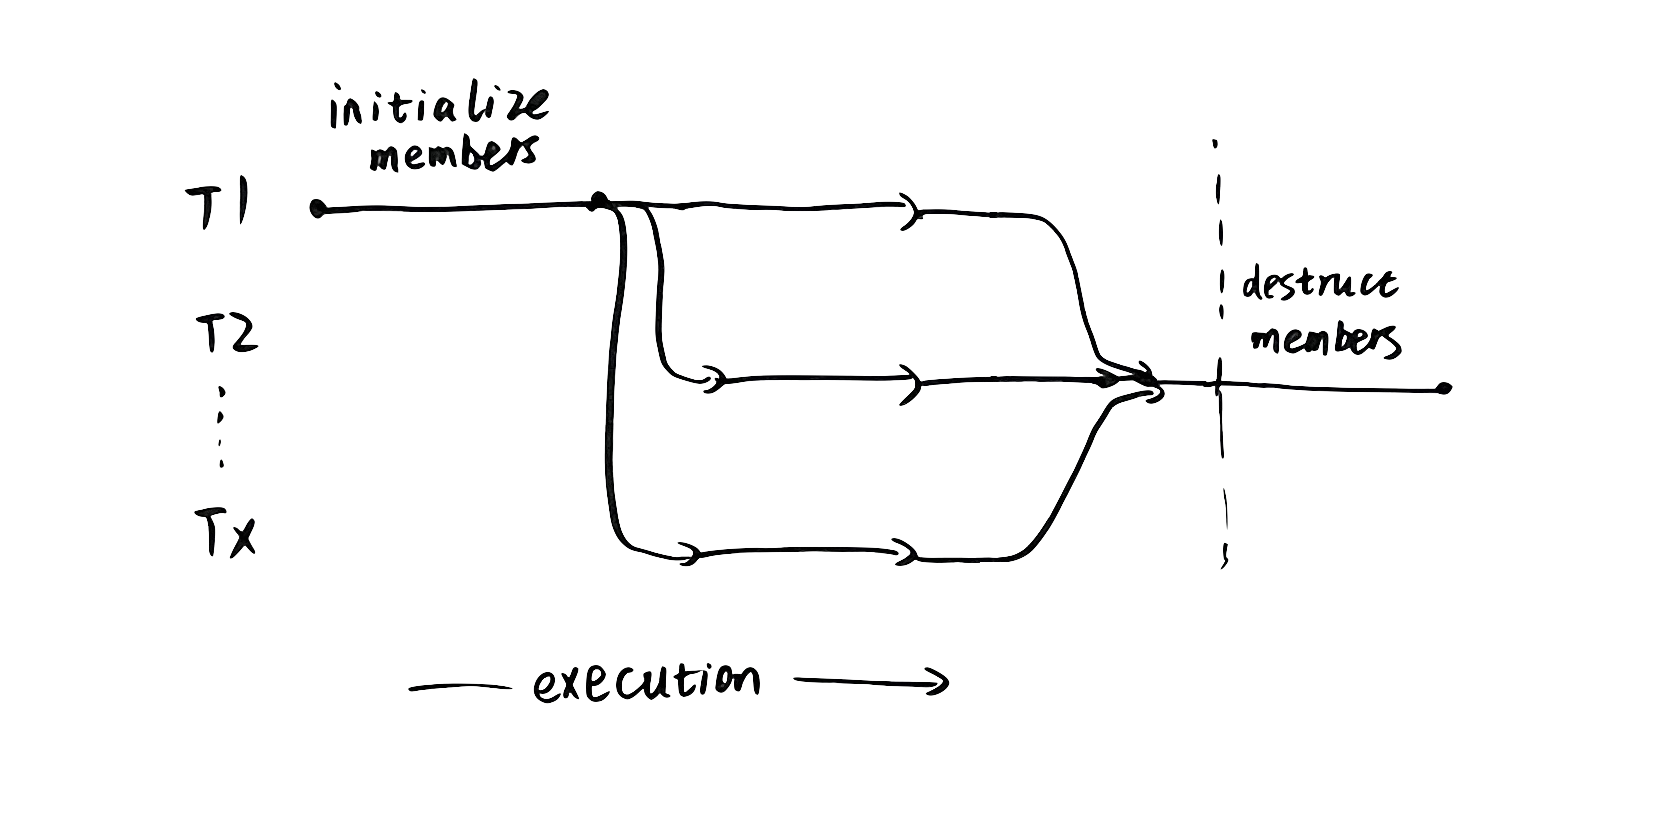 initialize
members
T1
destruct
members
T2
Tx
execution